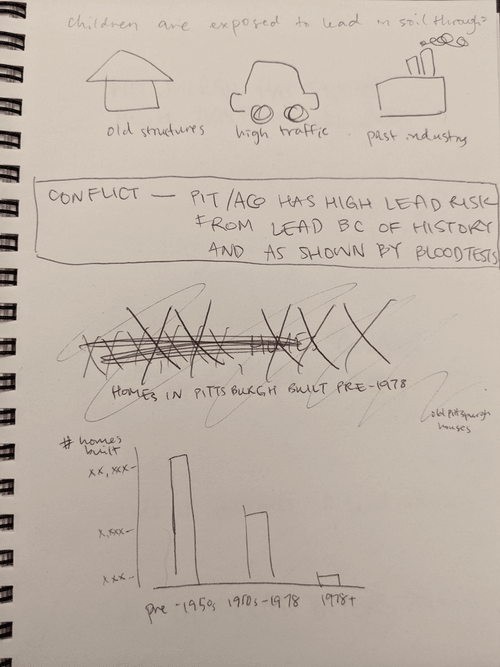 Children are exposed to lead in soil through:
old structures
high traffic
past industry
CONFLICT — PIT/ACO HAS HIGH LEAD RISK
FROM LEAD BC OF HISTORY
AND AS SHOWN BY BLOODTESTS
HOMES IN PITTSBURGH BUILT PRE-1978
old Pittsburgh
houses
# homes
built
xx,xxx-
x,xxx-
xxx-
pre-1950s 1950s-1978 1978+